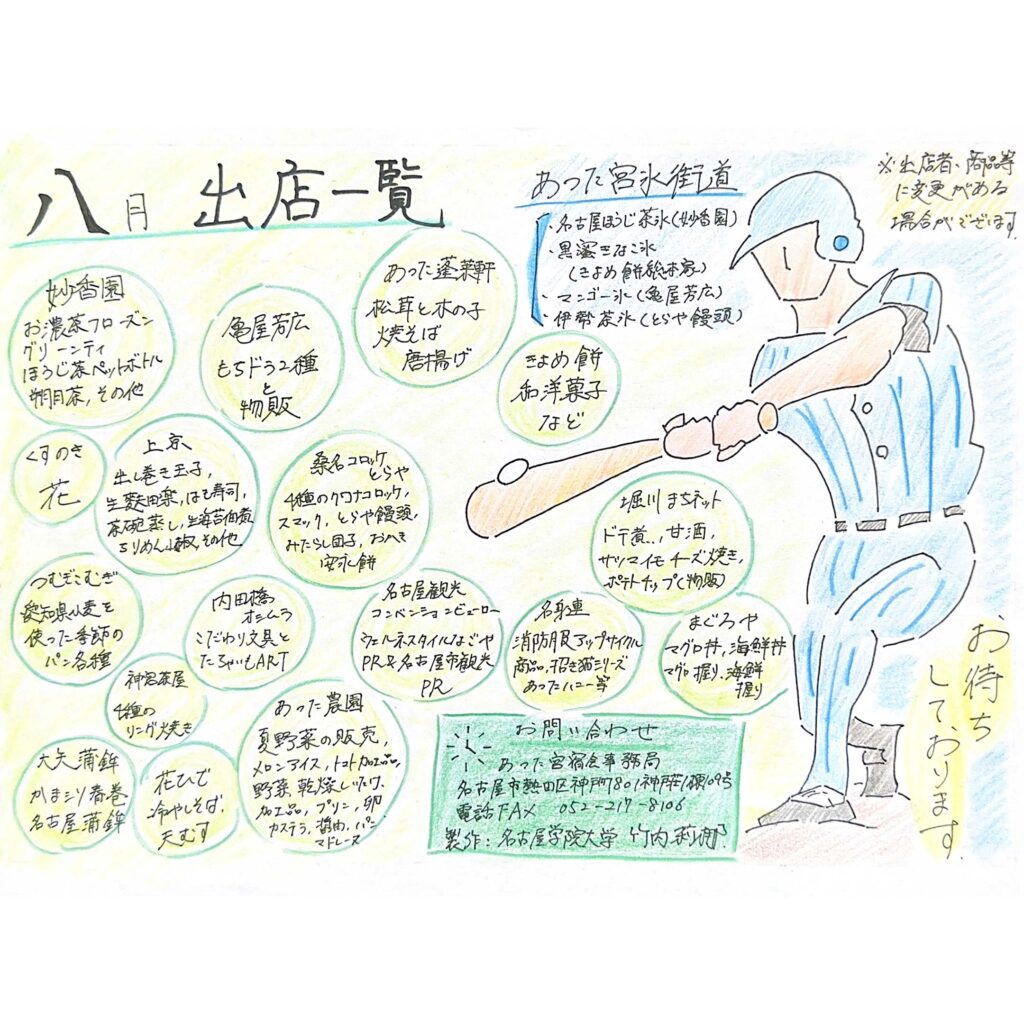 八月 出店一覧
※出店者、商品等
に変更がある
場合がございます。
あつた宮氷街道
・名古屋ほうじ茶氷(妙香園)
・黒蜜きなこ氷
(きよめ餅総本家)
・マンゴー氷(亀屋芳広)
・伊勢茶氷(とらや饅頭)
妙香園
お濃茶フローズン
グリーンティ
ほうじ茶ペットボトル
朔日茶、その他
亀屋芳広
もちドラ2種
と
物販
あつた蓬莱軒
松茸と木の子
焼そば
唐揚げ
きよめ餅
和洋菓子
など
くすのき
花
上京
出し巻き玉子、
生麩田楽、はも寿司、
茶碗蒸し、生海苔佃煮
ちりめん山椒、その他
桑名コロッケ
とらや
4種のクワナコロッケ、
スマック、とらや饅頭、
みたらし団子、おへき
安永餅
堀川まちネット
ドテ煮、甘酒、
サツマイモチーズ焼き、
ポテトチップ(物販)
つむぎこむぎ
愛知県小麦を
使った季節の
パン各種
内田橋
オシムラ
こだわり文具と
たちゃいもART
名古屋観光
コンベンションビューロー
ウェルネスタイルなごや
PR&名古屋市観光
PR
名身連
消防服アップサイクル
商品、招き猫シリーズ
あつたハニー等
まぐろや
マグロ丼、海鮮丼
マグロ握り、海鮮
握り
神宮茶屋
4種の
リング焼き
あつた農園
夏野菜の販売、
メロンアイス、トマト加工品、
野菜、乾燥しいたけ、
加工品、プリン、卵
カステラ、醤油、パン、
マドレーヌ
大矢蒲鉾
かまぼこり春巻
名古屋蒲鉾
花ひで
冷やしそば、
天むす
お問い合わせ
あつた宮宿会事務局
名古屋市熱田区神戸町801神戸荘1棟109号
電話FAX 052-217-8106
製作:名古屋学院大学 竹内
お待ち
しております。